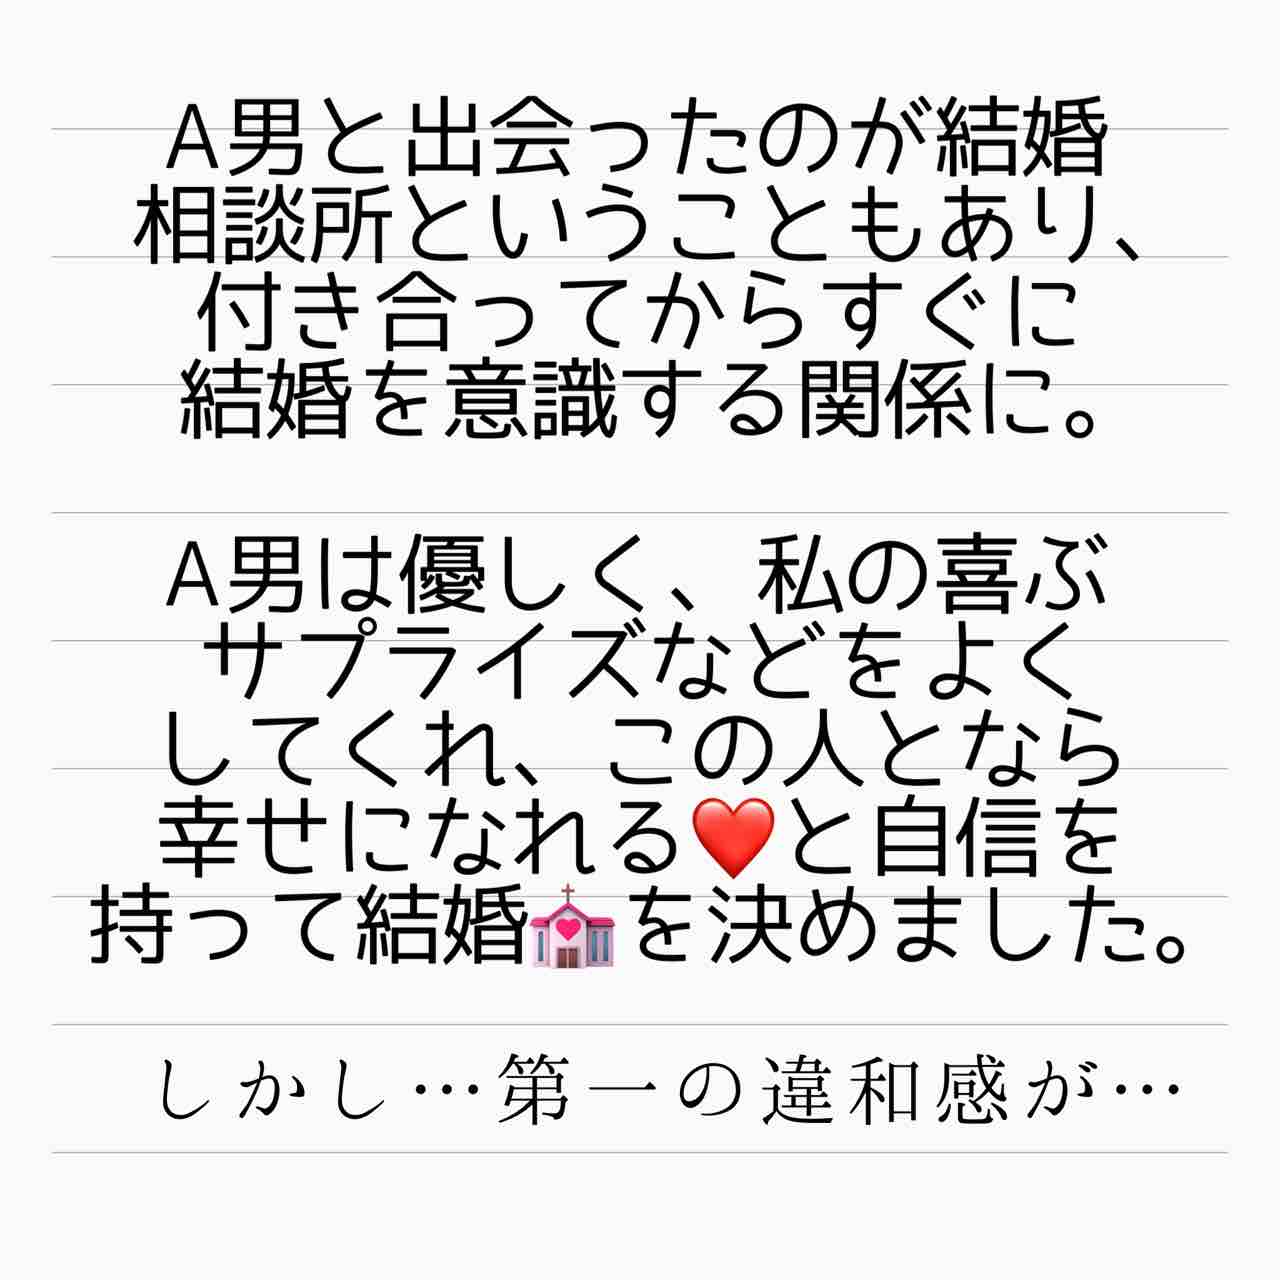 A男と出会ったのが結婚
相談所ということもあり、
付き合ってからすぐに
結婚を意識する関係に。
A男は優しく、私の喜ぶ
サプライズなどをよく
してくれ、この人となら
幸せになれる❤️と自信を
持って結婚💒を決めました。
しかし…第一の違和感が…